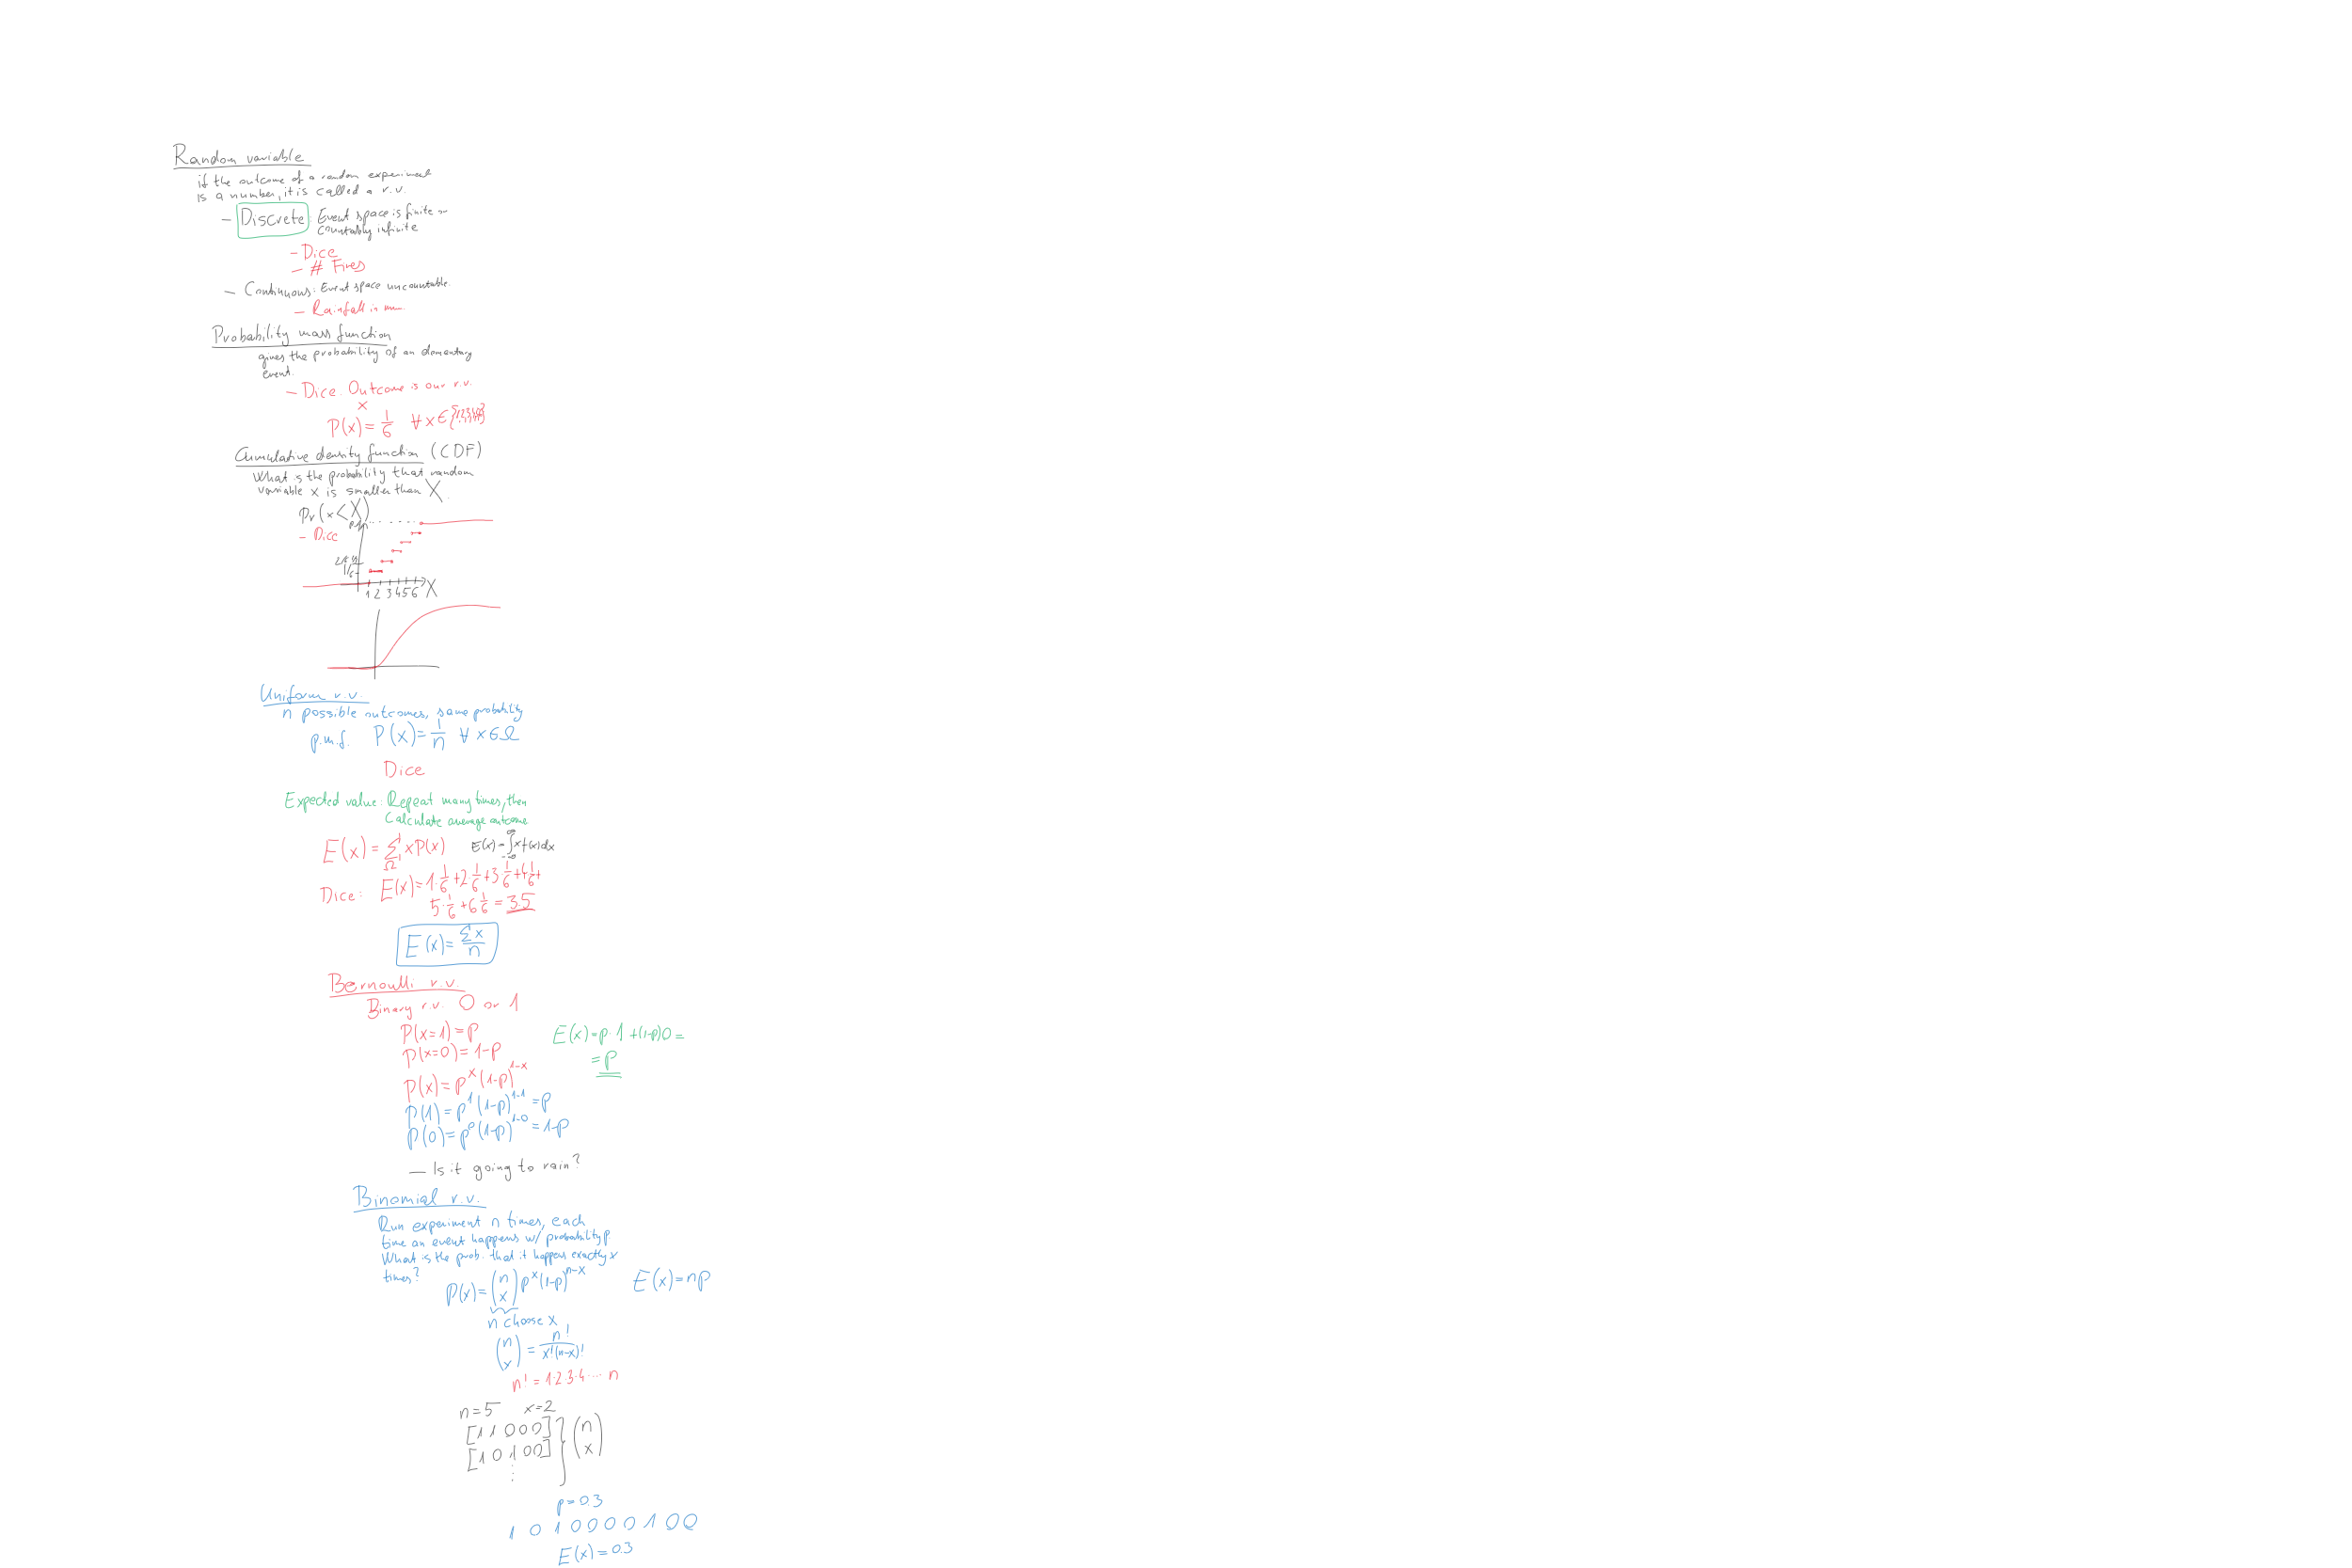 Random variable
if the outcome of a random experiment
is a number, it is called a r.v.
- Discrete: Event space is finite or
countably infinite
- Dice
- # Fires
- Continuous: Event space uncountable.
- Rainfall in mm.
Probability mass function
gives the probability of an elementary
event.
- Dice. Outcome is our r.v.
x
P(x) = 1/6 ∀ x ∈ {1,2,3,4,5,6}
Cumulative density function (CDF)
What is the probability that random
variable x is smaller than X.
Pr(x < X)
- Dice
1/6
1 2 3 4 5 6 X
Uniform r.v.
n possible outcomes, same probability
p.m.f. P(x) = 1/n ∀ x ∈ Ω
Dice
Expected value: Repeat many times, then
Calculate average outcome
E(x) = Σ_Ω x P(x) E(x) = ∫_{-∞}^{∞} x f(x) dx
Dice: E(x) = 1·1/6 + 2 1/6 + 3·1/6 + 4 1/6 +
5·1/6 + 6 1/6 = 3.5
E(x) = Σx/n
Bernoulli r.v.
Binary r.v. 0 or 1
P(x=1) = p
P(x=0) = 1-p
E(x) = p·1 + (1-p)0 =
= p
P(x) = p^x (1-p)^{1-x}
P(1) = p^1 (1-p)^{1-1} = p
P(0) = p^0 (1-p)^{1-0} = 1-p
- Is it going to rain?
Binomial r.v.
Run experiment n times, each
time an event happens w/ probability p.
What is the prob. that it happens exactly x
times?
P(x) = (n x) p^x (1-p)^{n-x} E(x) = np
n choose x
(n x) = n! / x!(n-x)!
n! = 1·2·3·4·... n
n=5 x=2
[1 1 0 0 0]
[1 0 1 0 0] } (n x)
⋮
p = 0.3
1 0 1 0 0 0 0 1 0 0
E(x) = 0.3